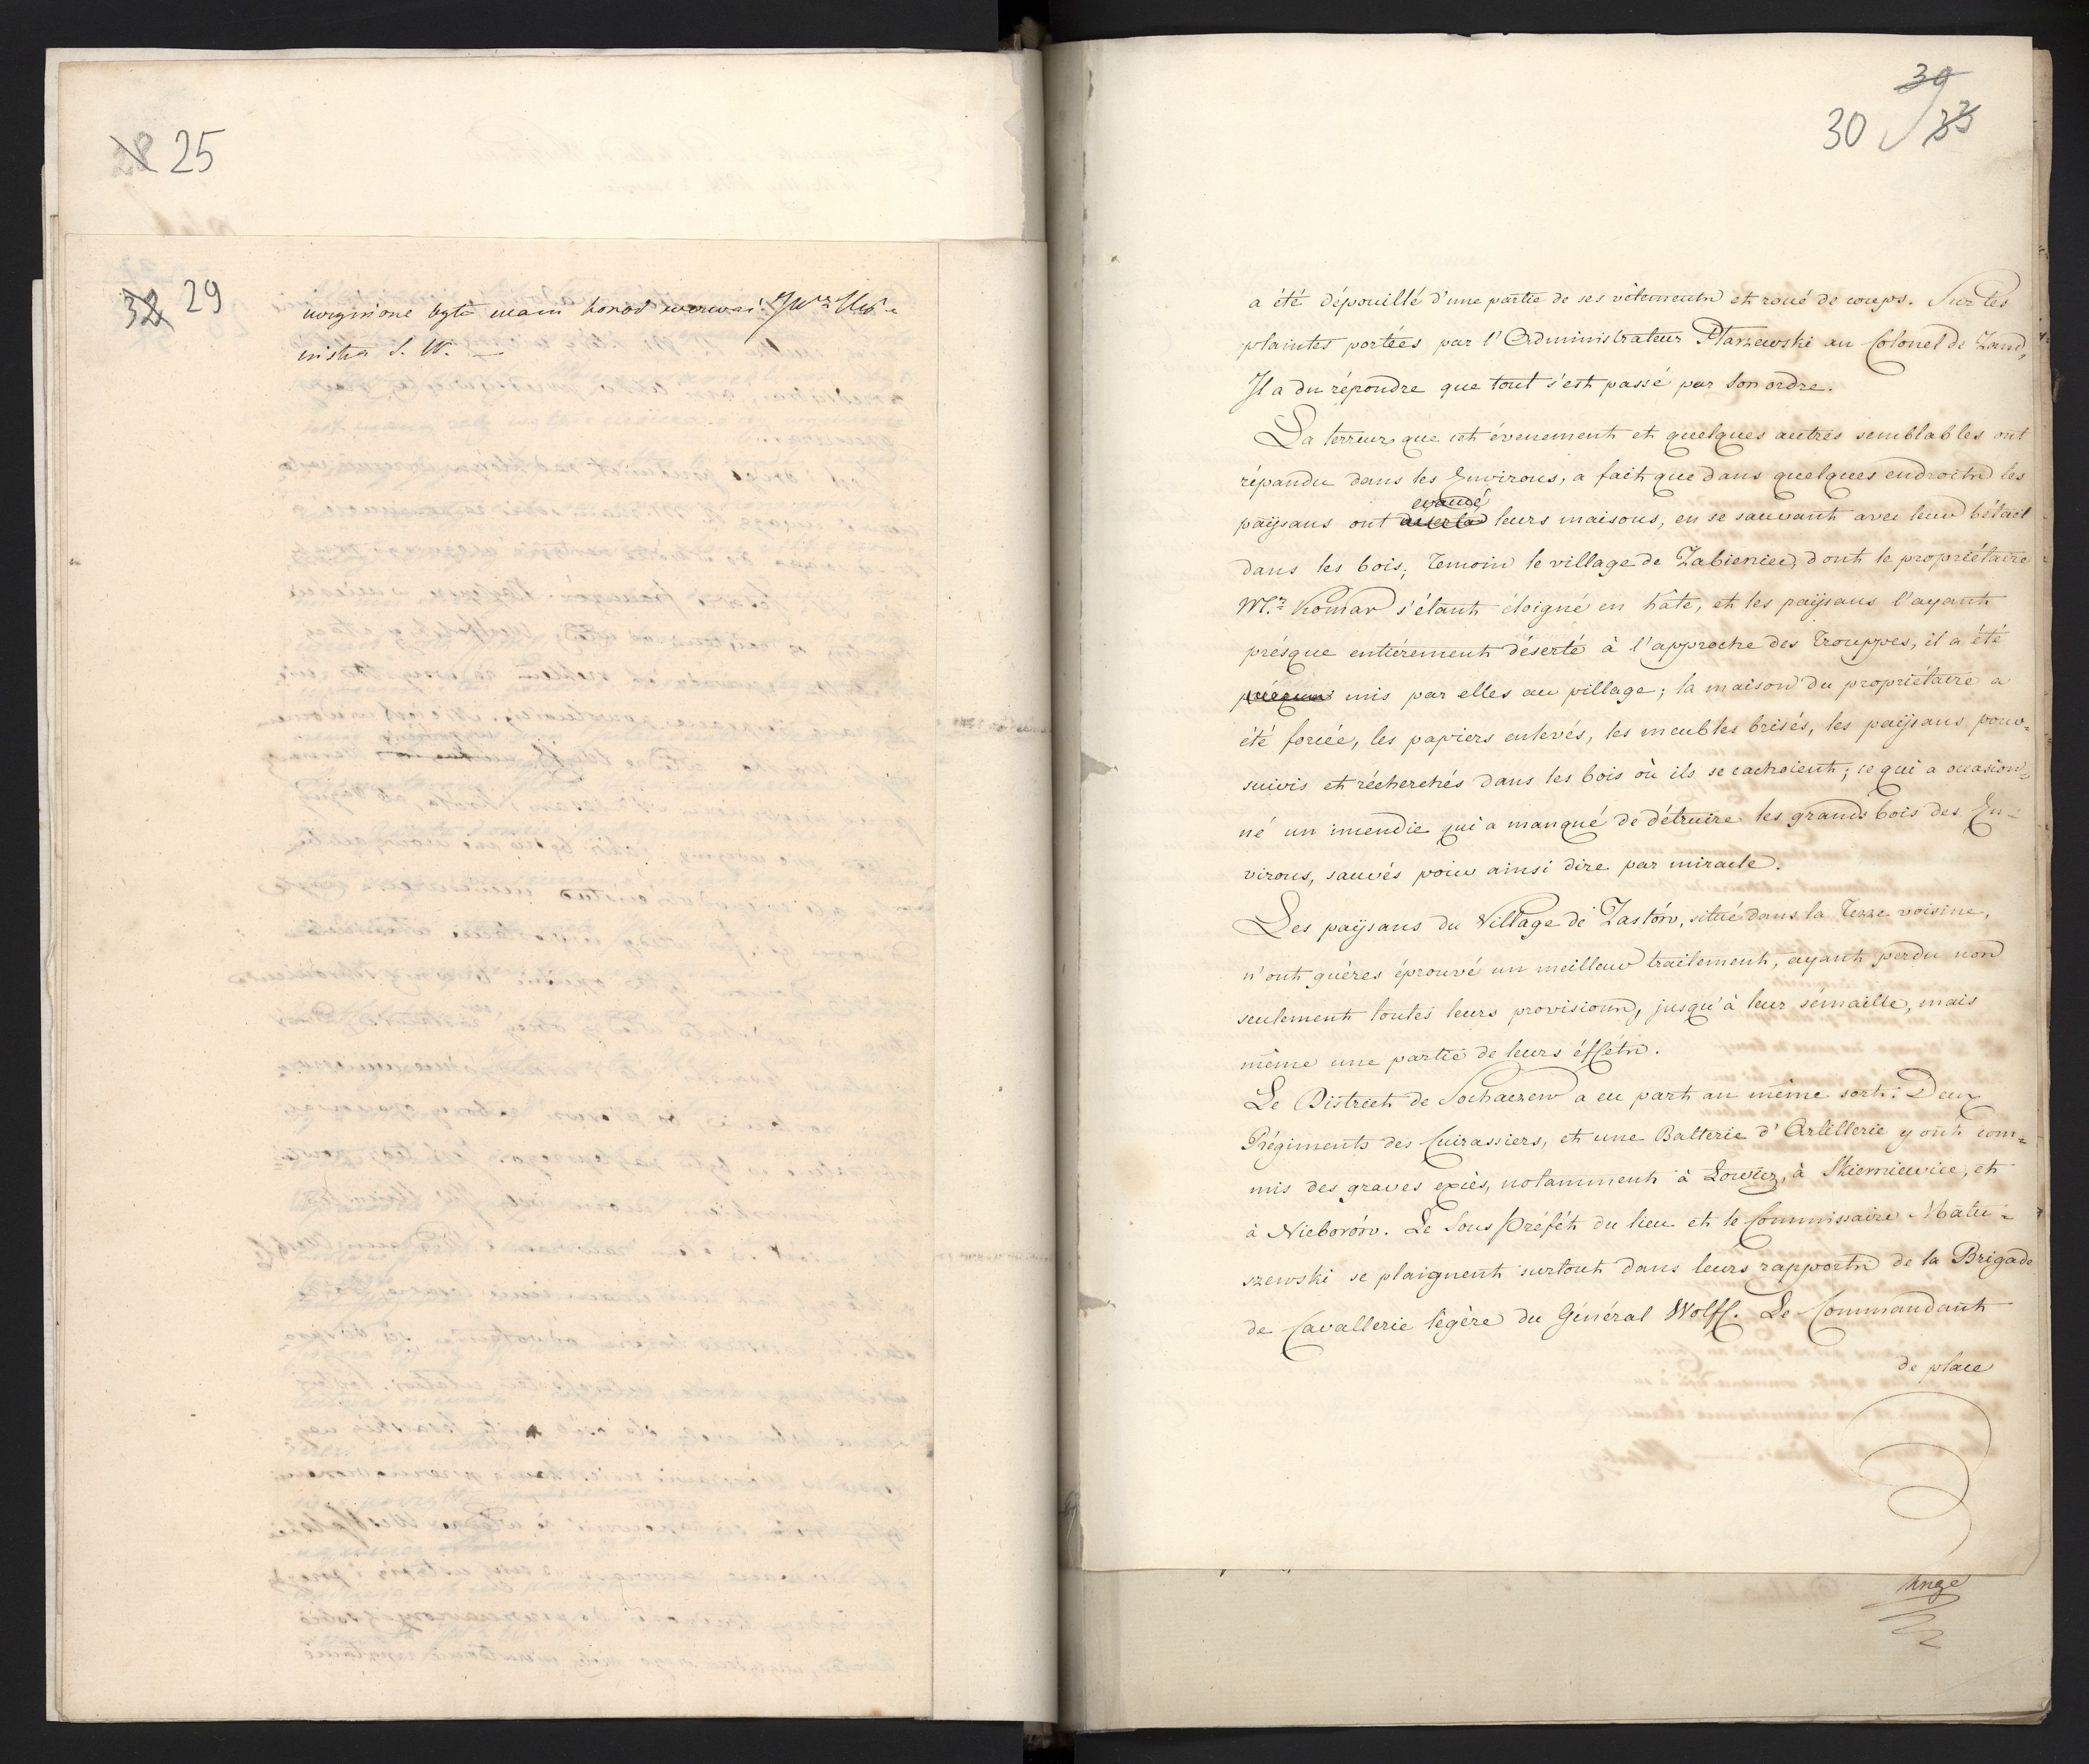 25
29
uczynione było mam honor wezwać JW. Mi-
nistra S. W. —
30
a été dépouillé d'une partie de ses vêtements et roué de coups. Sur les
plaintes portées par l'Administrateur au Colonel de Zand,
Il a du répondre que tout s'est passé par son ordre.
La terreur que cet évenement et quelques autres semblables ont
répandu dans les Environs, a fait que dans quelques endroits les
evacué
paÿsans ont leurs maisons, en se sauvant avec leur bétail
dans les bois; Temoin le village de Zabieniec, dont le propriétaire
Mr. Komar s'étant éloigné en hâte, et les paÿsans l'ayant
présque entiérement déserté à l'approche des Trouppes, il a été
mis par elles au pillage; la maison du propriétaire a
été forcée, les papiers enlevés, les meubles brisés, les paÿsans pour=
suivis et récherchés dans les bois où ils se cachoient; ce qui a occasion=
né un incendie qui a manqué de détruire les grands bois des En=
virons, sauvés pour ainsi dire par miracle.
Les paÿsans du Village de Zastów, situé dans la Terre voisine,
n'ont guères éprouvé un meilleur traitement, ayant perdu non
seulement toutes leurs provisions, jusqu'à leur sémaille, mais
même une partie de leurs éffets.
Le District de Sochaczew a eu part au même sort: Deux
Régiments des Cuirassiers, et une Batterie d'Artillerie y ont com=
mis des graves excès, notamment à Łowicz, à Skierniewice, et
à Nieborów. Le Sous Préfét du lieu et le Commissaire Matu=
szewski se plaignent surtout dans leurs rapports de la Brigade
de Cavallerie légère du Général Wolff. Le Commandant
de place